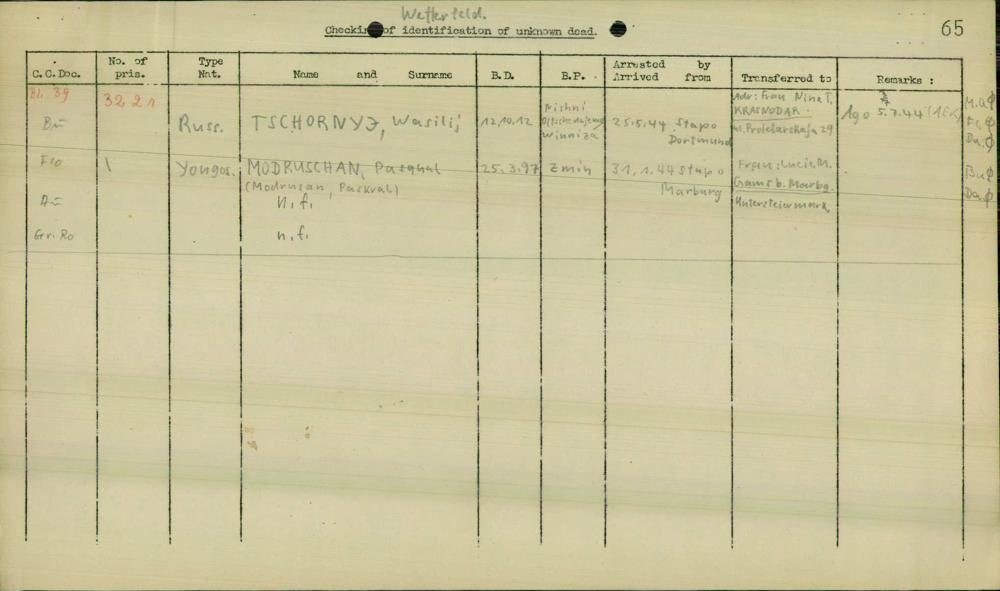 Wetterfeld.
Checking of identification of unknown dead.
65
C.C.Doc.
No. of pris.
Type Nat.
Name and Surname
B.D.
B.P.
Arrested by
Arrived from
Transferred to
Remarks :
Bl. 39
3221
Bū
Russ.
TSCHORNYJ, Wasilij
12.10.12
Nishni
Winniza
25.5.44 Stapo
Dortmund
Adr: Frau Nina T.
KRASNODAR.
ul. Proletarskaja 29
Ago 5.7.44
Da.φ
Flo
\
Yougos.
MODRUSCHAN, Pasqual
(Modrusan, Paskval)
25.3.97
Zmin
31.1.44 Stapo
Marburg
Frau: Lucie M.
Gams b. Marbg.
Untersteiermark
Bu φ
Da.φ
Au
n.f.
Gr. Ro
n.f.